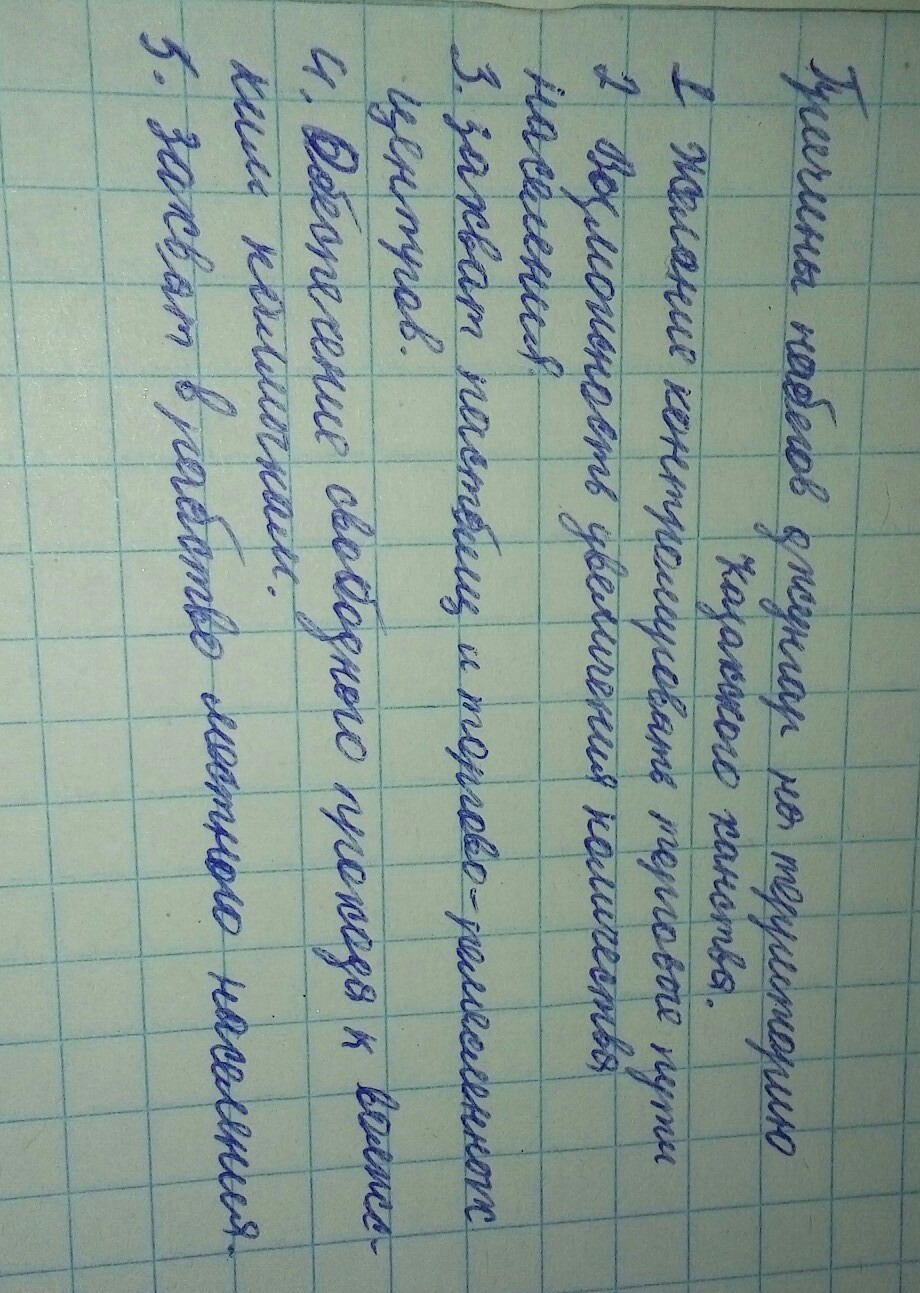 Причины набегов джунгар на территорию
казахского ханства.
1 Желание контролировать торговые пути
2 Возможность увеличения количества
населения
3. захват пастбищ и торгово-ремесленных
центров.
4. Обеспечение свободного прохода к волжс-
ким калмыкам.
5. Захват в рабство местного населения.